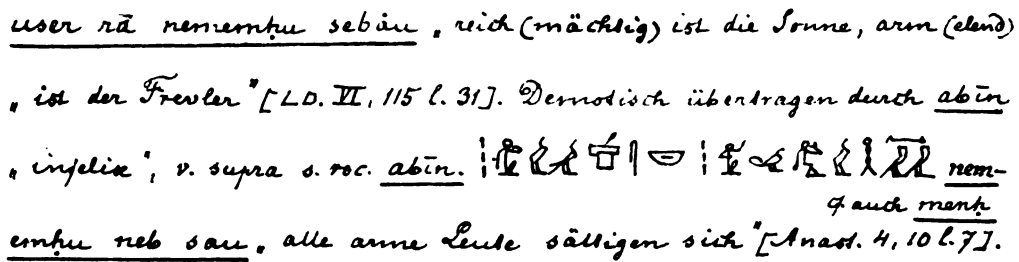 user rā nememḥu sebȧu „reich (mächtig) ist die Sonne, arm (elend)
„ist der Frevler" [LD. VI, 115 l. 31]. Demotisch übertragen durch abīn
„infelix", v. supra s. voc. abīn. nem-
auch menḥ
emḥu neb sau „alle arme Leute sättigen sich" [Anast. 4, 10 l. 7].